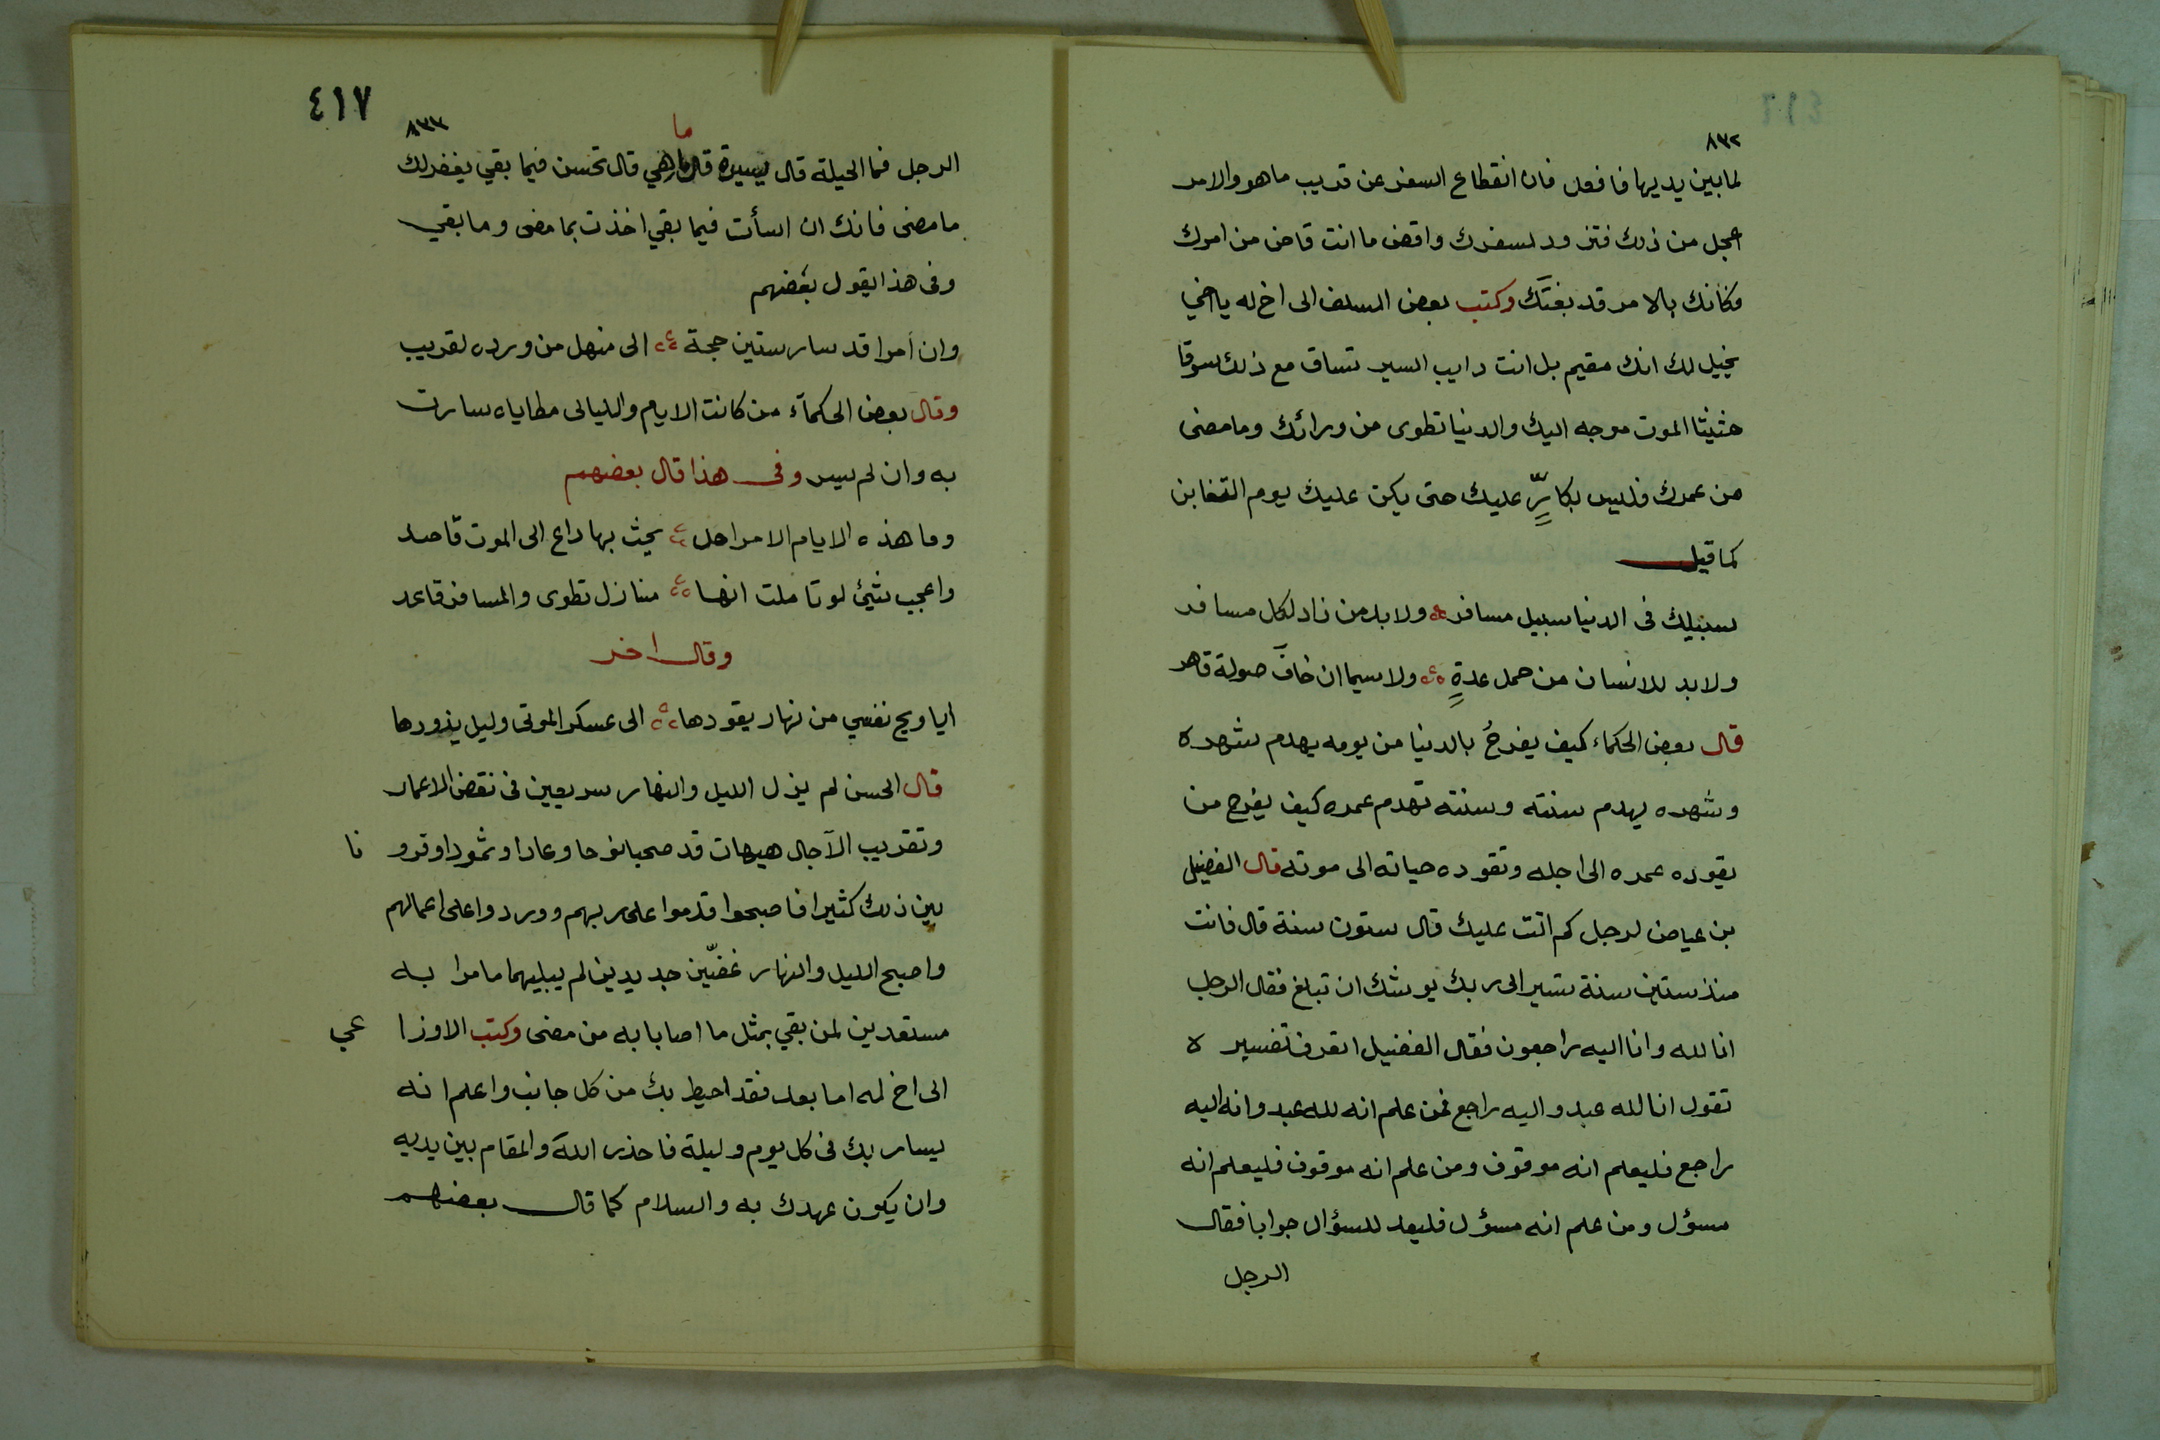 ٨٣٢
لما بين يديها فافعل فان انقطاع السفر عن قريب ما هو والامر
اعجل من ذلك فتزود لسفرك واقض ما انت قاض من امرك
وكأنك بالامر قد بغتك وكتب بعض السلف الى اخ له يا اخي
يخيل لك انك مقيم بل انت دايب السير تساق مع ذلك سوقا
حثيثا الموت موجه اليك والدنيا تطوى من ورائك وما مضى
من عمرك فليس بكارٍّ عليك حتى يكن عليك يوم التغابن
كما قيل
سبيلك فى الدنيا سبيل مسافر ولا بد من زاد لكل مسافر
ولا بد للانسان من حمل عدةٍ ولا سيما ان خافَ صولة قاهر
قال بعض الحكماء كيف يفرحُ بالدنيا من يومه يهدم شهره
وشهره يهدم سنته وسنته تهدم عمره كيف يفرح من
يقوده عمره الى اجله وتقوده حياته الى موته قال الفضيل
بن عياض لرجل كم اتت عليك قال ستون سنة قال فانت
منذ ستين سنة تسير الى ربك يوشك ان تبلغ فقال الرجل
انا لله وانا اليه راجعون فقال الفضيل اتعرف تفسيره
تقول انا لله عبد واليه راجع فمن علم انه لله عبد وانه اليه
راجع فليعلم انه موقوف ومن علم انه موقوف فليعلم انه
مسؤل ومن علم انه مسؤل فليعد للسؤال جوابا فقال
الرجل
٤١٧
٨٣٣
ما
الرجل فما الحيلة قال يسيرة قال ما هي قال تحسن فيما بقي يغفر لك
ما مضى فانك ان اسأت فيما بقي اخذت بما مضى وما بقي
وفى هذا يقول بعضهم
وان أمرا قد سار ستين حجة الى منهل من ورده لقريب
وقال بعض الحكمآء من كانت الايام والليالى مطاياه سارت
به وان لم يسر وفى هذا قال بعضهم
وما هذه الايام الا مراحل يحث بها داع الى الموت قاصد
واعجب شيئ لو تاملت انها منازل تطوى والمسافر قاعد
وقال اخر
ايا ويح نفسي من نهار يقودها الى عسكر الموتى وليل يذودها
قال الحسن لم يزل الليل والنهار سريعين فى نقض الاعمار
وتقريب الآجال هيهات قد صحبا نوحا وعادا وثمودا وقرونا
بين ذلك كثيرا فاصبحوا قدموا على ربهم ووردوا على اعمالهم
واصبح الليل والنهار غضّين جديدين لم يبليهما ما مرا به
مستعدين لمن بقي بمثل ما اصابا به من مضى وكتب الاوزاعي
الى اخ له اما بعد فقد احيط بك من كل جانب واعلم انه
يسار بك فى كل يوم وليلة فاحذر الله والمقام بين يديه
وان يكون عهدك به والسلام كما قال بعضهم